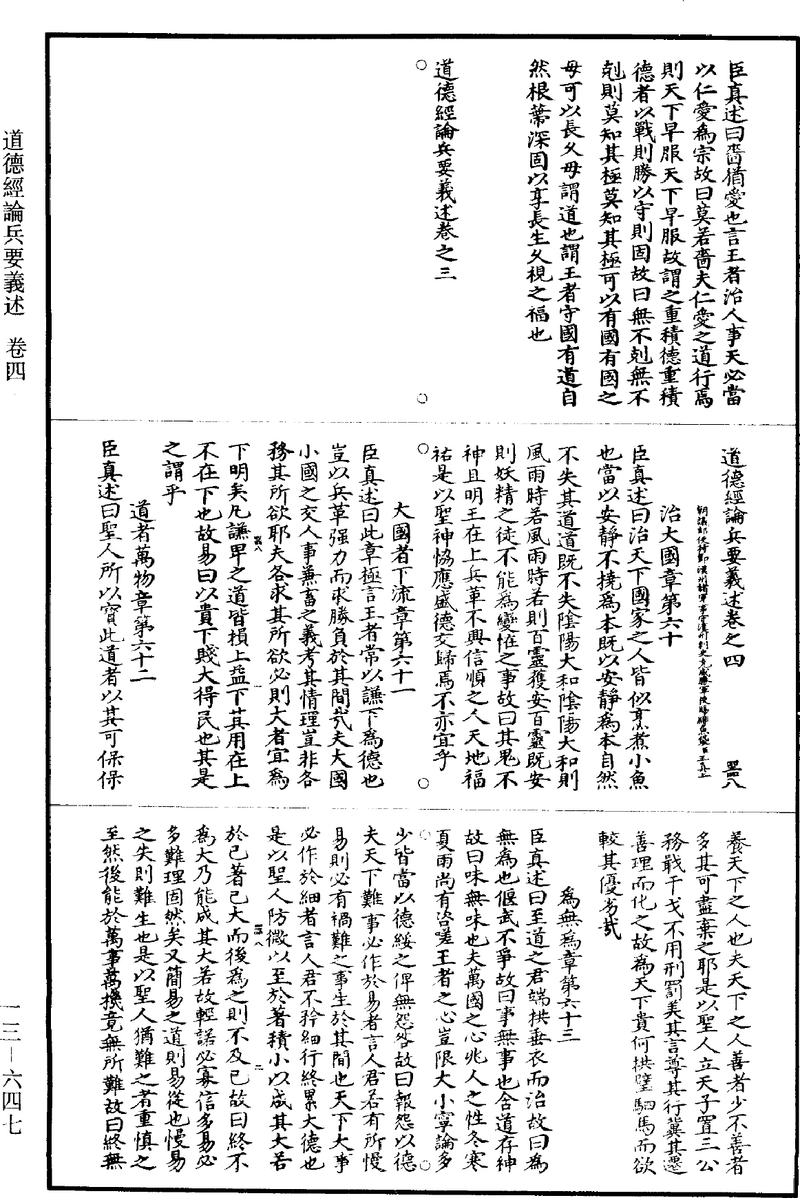 道德經論兵要義述 卷四
臣真述曰嗇猶愛也言王者治人事天必當
以仁愛為宗故曰莫若嗇夫仁愛之道行焉
則天下早服天下早服故謂之重積德重積
德者以戰則勝以守則固故曰無不剋無不
剋則莫知其極莫知其極可以有國有國之
母可以長久母謂道也謂王者守國有道自
然根蔕深固以享長生久視之福也
道德經論兵要義述卷之三
道德經論兵要義述卷之四 四八
治大國章第六十
臣真述曰治天下國家之人皆似烹煮小魚
也當以安靜不撓為本既以安靜為本自然
不失其道道既不失陰陽大和陰陽大和則
風雨時若風雨時若則百靈獲安百靈既安
則妖精之徒不能為變恠之事故曰其鬼不
神且明王在上兵革不興信順之人天地福
祐是以聖神恊應盛德交歸焉不亦宜乎
大國者下流章第六十一
臣真述曰此章極言王者常以謙下為德也
豈以兵革强力而求勝負於其間㢤夫大國
小國之交人事兼畜之義考其情理豈非各
務其所欲耶夫各求其所欲必則大者宜為
下明矣凡謙畀之道皆損上益下其用在上
不在下也故易曰以貴下賤大得民也其是
之謂乎
道者萬物章第六十二
臣真述曰聖人所以寶此道者以其可保保
養天下之人也夫天下之人善者少不善者
多其可盡棄之耶是以聖人立天子置三公
務戢干戈不用刑罰美其言尊其行冀其遷
善理而化之故為天下貴何拱璧駟馬而欲
較其優劣㢤
為無為章第六十三
臣真述曰至道之君端拱垂衣而治故曰為
無為也偃武不爭故曰事無事也含道存神
故曰味無味也夫萬國之心兆人之性冬寒
夏雨尚有咨嗟王者之心豈限大小寧論多
少皆當以德綏之俾無怨咎故曰報怨以德
夫天下難事必作於易者言人君若有所慢
易則必有禍難之事生於其間也天下大事
必作於細者言人君不矜細行終累大德也
是以聖人防微以至於著積小以成其大若
於已著已大而後為之則不及已故曰終不
為大乃能成其大若故輕諾必寡信多易必
多難理固然矣又簡易之道則易從也慢易
之失則難生也是以聖人猶難之者重慎之
至然後能於萬事萬機竟無所難故曰終無
一三—六四七